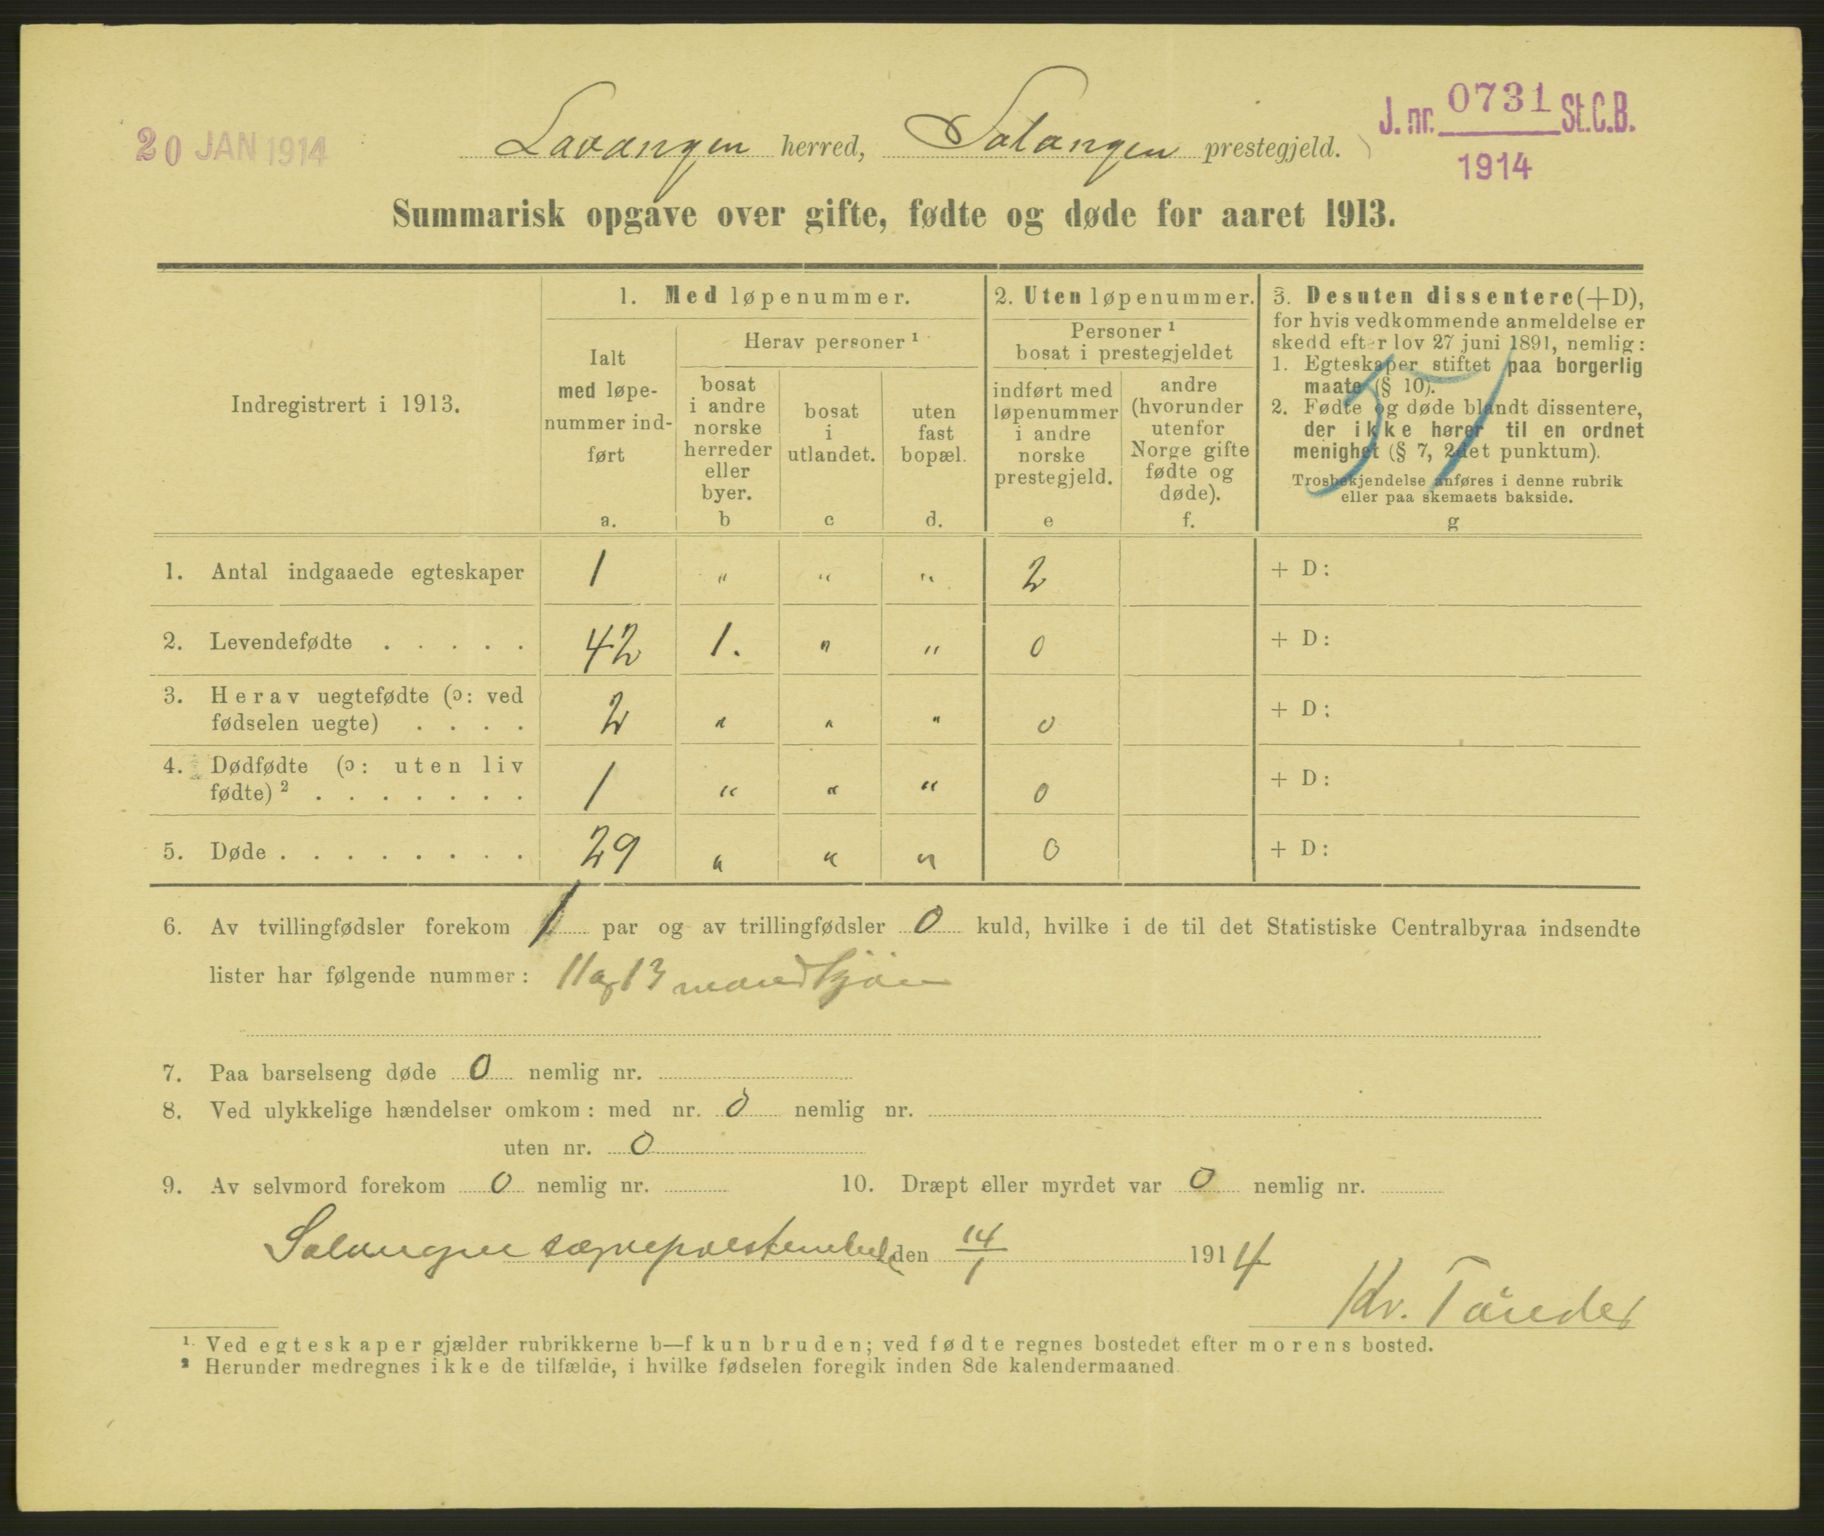 20 JAN 1914
Lavangen herred, Salangen prestegjeld.
J. nr. 0731 St.C.B.
1914
Summarisk opgave over gifte, fødte og døde for aaret 1913.
Indregistrert i 1913.
1. Med løpenummer.
Ialt
med løpe-
nummer ind-
ført
a.
Herav personer ¹
bosat
i andre
norske
herreder
eller
byer.
b
bosat
i
utlandet.
c
uten
fast
bopæl.
d.
2. Uten løpenummer.
Personer ¹
bosat i prestegjeldet
indført med
løpenummer
i andre
norske
prestegjeld.
e
andre
(hvorunder
utenfor
Norge gifte
fødte og
døde).
f.
3. Desuten dissentere (+D),
for hvis vedkommende anmeldelse er
skedd efter lov 27 juni 1891, nemlig:
1. Egteskaper stiftet paa borgerlig
maate (§ 10).
2. Fødte og døde blandt dissentere,
der ikke hører til en ordnet
menighet (§ 7, 2det punktum).
Trosbekjendelse anføres i denne rubrik
eller paa skemaets bakside.
g
1. Antal indgaaede egteskaper 1 " " " 2 + D:
2. Levendefødte . . . . . 42 1. " " 0 + D:
3. Herav uegtefødte (ɔ: ved
fødselen uegte) . . . . 2 " " " 0 + D:
4. Dødfødte (ɔ: uten liv
fødte) ² . . . . . . . 1 " " " 0 + D:
5. Døde . . . . . . . . 29 " " " 0 + D:
6. Av tvillingfødsler forekom 1 par og av trillingfødsler 0 kuld, hvilke i de til det Statistiske Centralbyraa indsendte
lister har følgende nummer: 11 og 13 mandkjøn
7. Paa barselseng døde 0 nemlig nr.
8. Ved ulykkelige hændelser omkom: med nr. 0 nemlig nr.
uten nr. 0
9. Av selvmord forekom 0 nemlig nr. 10. Dræpt eller myrdet var 0 nemlig nr.
Salangen sogneprestembede den 14/1 1914
Kv.
¹ Ved egteskaper gjælder rubrikkerne b—f kun bruden; ved fødte regnes bostedet efter morens bosted.
² Herunder medregnes ikke de tilfælde, i hvilke fødselen foregik inden 8de kalendermaaned.